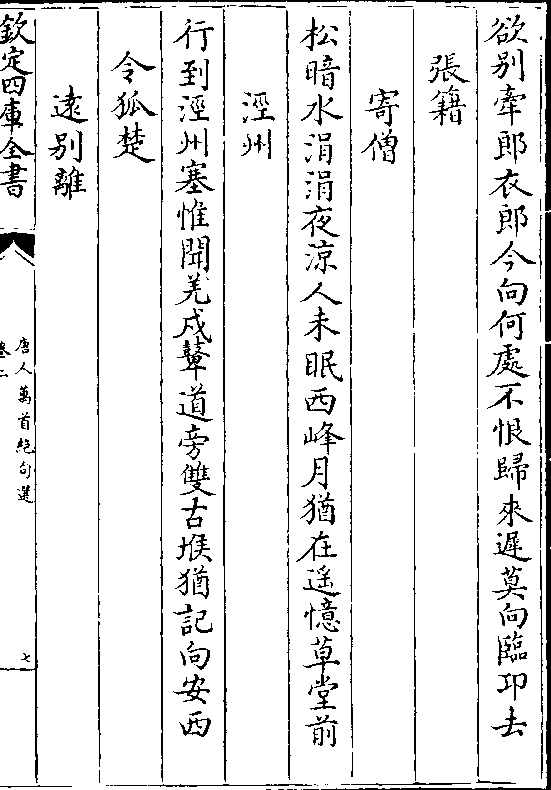 欲别牽郎衣郎今向何處不恨歸來遲莫向臨邛去
張籍
寄僧
松暗水涓涓夜涼人未眠西峰月猶在遥憶草堂前
涇州
行到涇州塞惟聞羌戍鼙道旁雙古堠猶記向安西
令狐楚
遠别離
欽定四庫全書
唐人萬首絶句選
卷二
七